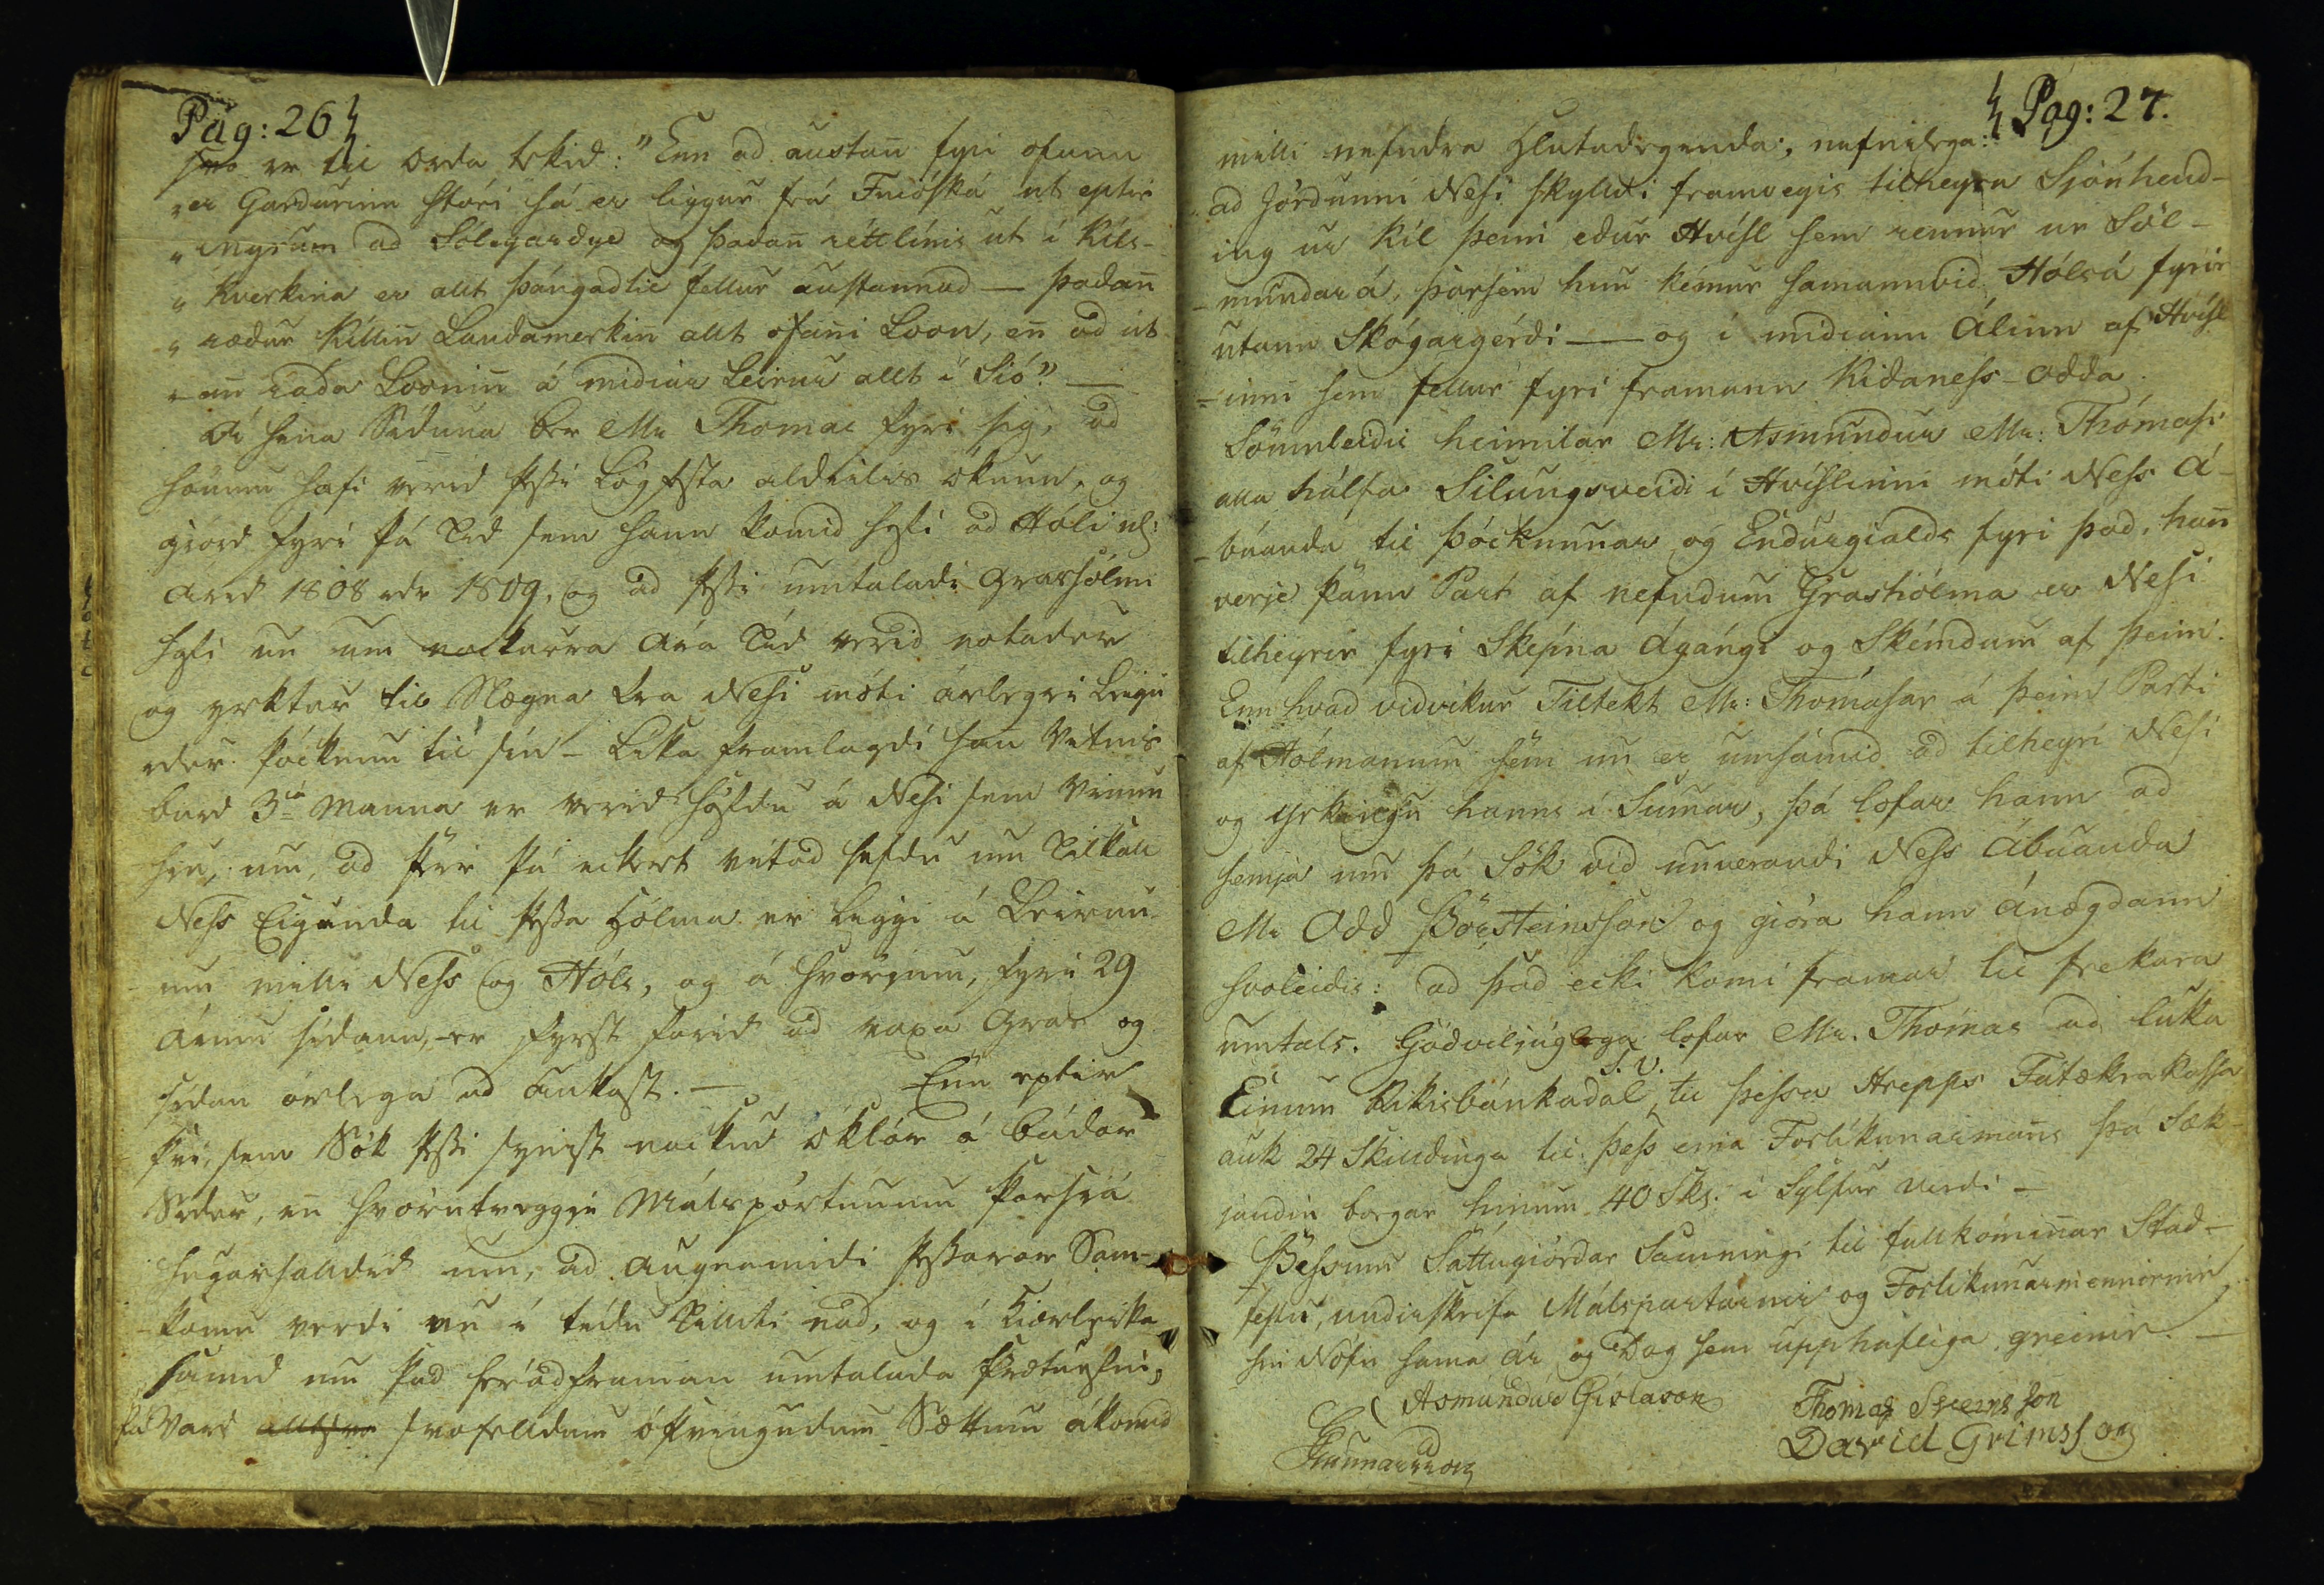 Pag: 26
svo er til orda tekid: "Enn ad austan fyri ofann
"er Gardurinn stóri sá er liggur frá Fnióská ut eptir
"Mýrum ad Sölvgardye og þadan réttlínis ut í Kíls-
"Kverkina er allt þángadtil fellur austannad — þadan
"rædur Kíllin Landamerkin allt ofani Loon, en ad út
"an ráda Loonin á midiar Leirur allt í Sió." —
Á hina Síduna ber Mr Thomas fyri sig, ad
hönum hafi verid þessi Lögfesta aldeilis ókunn, og
giörd fyri þá Tíd sem hann komid hafi ad Hóli nl:
Arid 1808 edr 1809, og ad þessi umtaladi Grashólmi
hafi nu um nockurra Ára Tíd verid notadur
og yrktur til Slægna frá Nesi móti árlegri Leigu
edur þócknun til sín — Lika framlagdi han Vitnis
burd 3ia Manna er verid höfdu á Nesi sem Vinnu
hiu, um, ad þeir þá eckert vitad hefdu um Tilkall
Ness Eiganda til þessa Hólma er liggi á Leirun
um milli Ness og Hóls, og á hvörjum, fyri 29
Árum sídann, er fyrst farid ad vaxa Gras og
sídan árlega ad aukast. — Enn eptir
því, sem Sök þessi synist nockud óklár á bádar
Sídur, en hvorutveggju Málspörtunum þarsiá
hugarhaldid um, ad augnamidi þessarar Sam-
komu verdi nu í tédu Tilliti nád, og í Kiærleika
samid um þad hér ad framan umtalada þrætuefni;
þá Vard svofelldum óþvingudum Sættum ákomid
Pag: 27.
milli nefndra Hlutadeigenda, nefnilega:
"ad Jördunni Nesi skylldi framvegis tilheyra Sjónhend-
ing ur Kíl þeim edur Hvísl sem rennur ur Söl-
-mundará, þarsem hun kémur samannvid Hólsá fyrir
utann Skógargérdi — og í midiann Álinn af Hvísl
-inni sem fellur fyri framann Kidaness-odda
Sömuleidis heimilar Mr: Asmundur Mr: Thómasi
alla hálfa Silungsveidi í Hvíslinni móti Ness Á-
-búanda til þócknunar og Endurgialds fyri þad, han
verje þánn Part af nefndum Grashólma er Nesi
tilheyrir fyri Skepna Ágángi og Skémdum af þeim.
Enn hvad vidvikur Tiltekt Mr: Thomasar á þeim Parti
af Hólmanum sem nu er umsamid ad tilheyri Nesi
og yrkingu hanns í Sumar, þá lofar hann ad
semja um þá Sök vid nuverandi Ness Ábuanda
Mr Odd Þorsteinsson og gióra hann Ánægdann
svoleidis: ad þad ecki komi framar til frekara
umtals. Gódviljuglega lofar Mr. Thomas ad lúka
S. V.
Einum Rikisbánkadal, til þessa Hrepps Fátækra kassa
auk 24 Skilldinga til þess eina Forlikunarmans þá Sæk-
jandin borgar hinum 40 Sks. í Sylfur virdi —
Þessum Sáttargiördar Samningi til fullkominar Stad-
festu, undirskrifa Málspartarnir og Forlikunarmennirnir
sin Nöfn sama ár og Dag sem upphaflega greinir. —
Asmundur Gislason Thomas Sveins Son
GGunnarsson David Grimsson